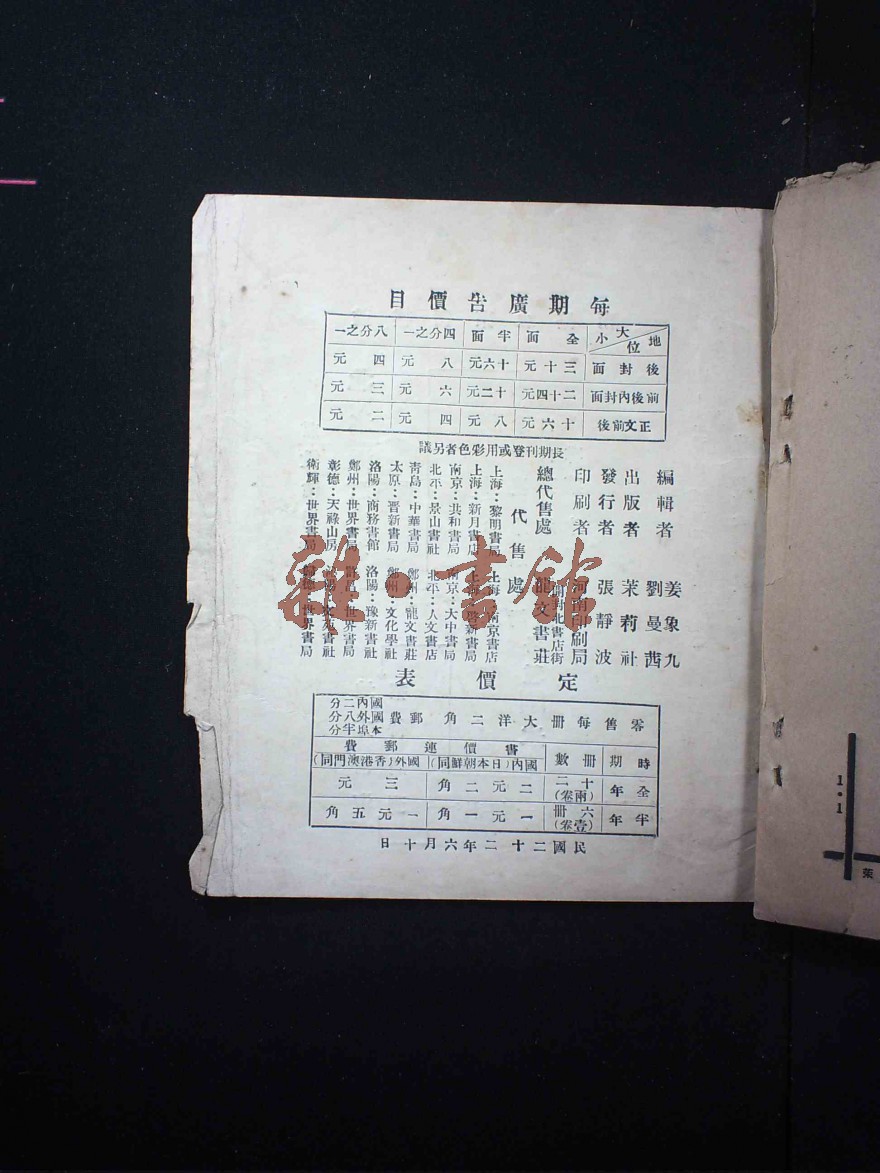 每期廣告價目
地位 大小 全面 半面 四分之一 八分之一
後封面 三十元 十六元 八元 四元
前後內封面 二十四元 十二元 六元 三元
正文前後 十六元 八元 四元 二元
長期刊登或用彩色者另議
編輯者 姜象九 劉曼茜
出版者 茉莉社
發行者 張靜波
印刷者 河南印刷局
總代售處 開封北書店街 龍文書莊
代售處
上海:黎明書局 上海:南京書店
上海:新月書店 上海:啓新書局
南京:共和書局 南京:大中書局
北平:景山書社 北平:人文書店
青島:中華書局 鄭州:龍文書莊
太原:晋新書局 鄭州:文化學社
洛陽:商務書館 洛陽:豫新書社
鄭州:世界書局 許昌:世界書局
彰德:天祿山房
衛輝:世界書局 世界書局
定價表
零售每冊大洋二角 郵費 國內二分 國外八分 本埠半分
時期 冊數 書價連郵費
國內(日本朝鮮同) 國外(香港澳門同)
全年 十二(兩卷) 二元二角 三元
半年 六冊(壹卷) 一元一角 一元五角
民國二十二年六月十日
雜·書館
1.1